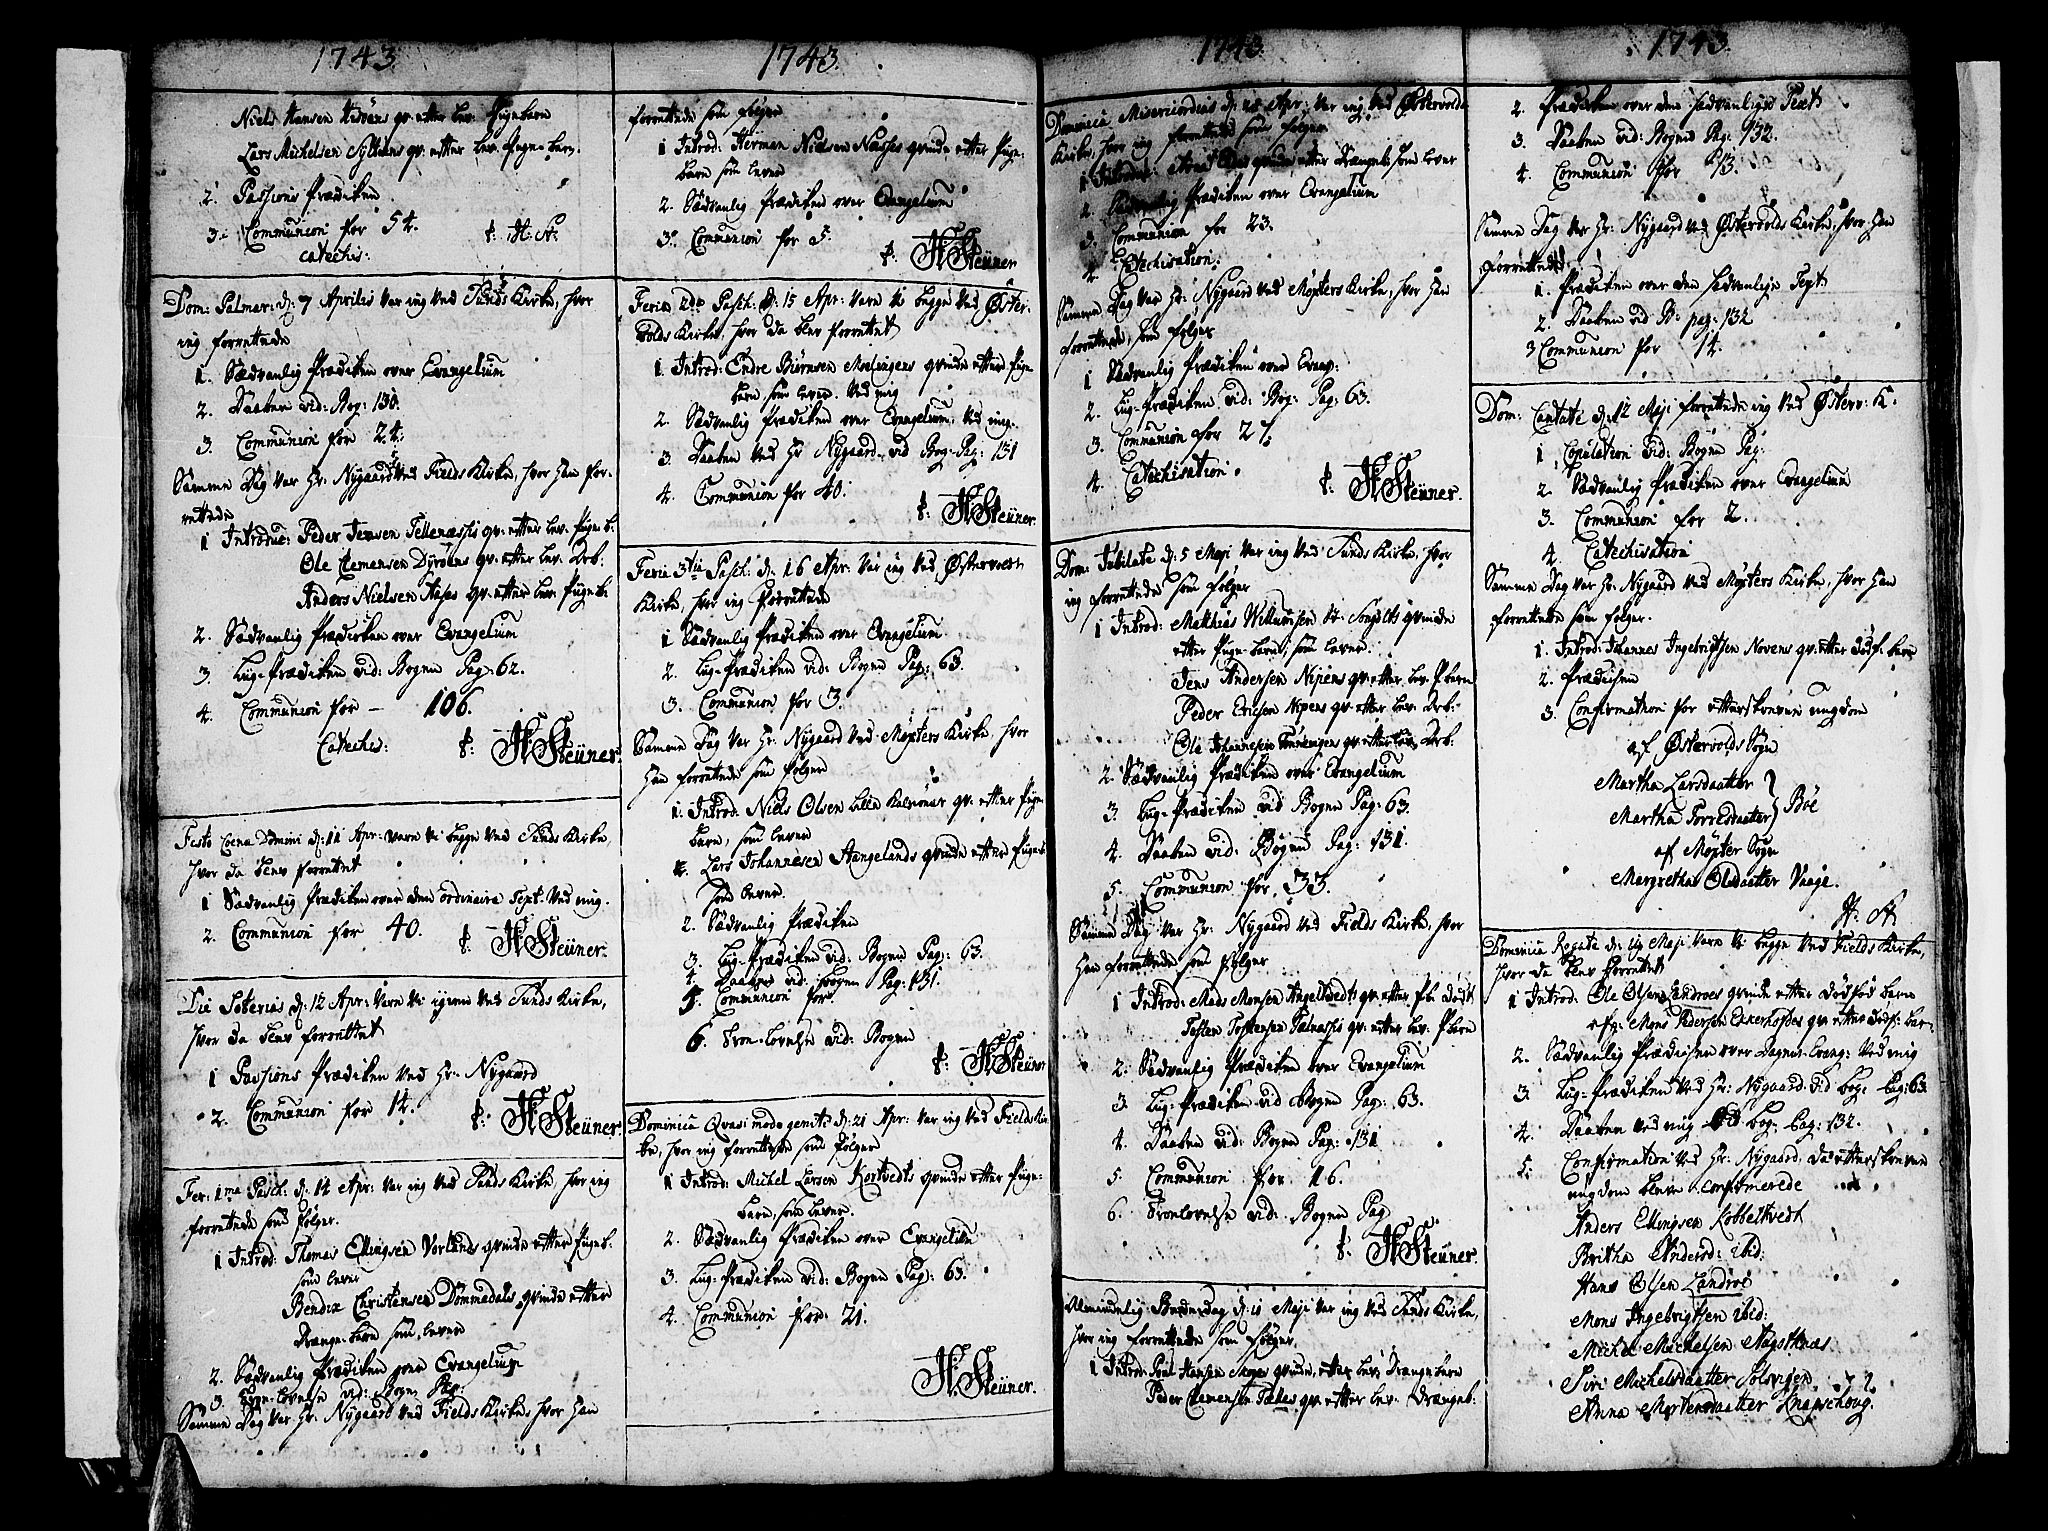 1743
Niels Hansen qv: etter lev: Pigebarn
Lars Michelsen qv: etter lev: Pige-barn
2. Passions Prædiken
3. Communion for 54. t: H: St:
Catechis:
Dom: Palmar: d: 7 Aprilis var ieg ved Sunds Kirke, hvor
ieg forrettede
1. Sædvanlig Prædiken over Evangelium
2. Daaben vid: Bog: 130.
3. Communion for 24.
Samme Dag var Hr: Nygaard ved Fields Kirke, hvor Han for-
rettede
1 Introduc: Peder Jensen Tellenæssis qv: etter lev: Pige-b:
Ole Clemensen Dyröens qv: etter lev: Dr:b:
Anders Nielsen qv: etter lev: Pige-b:
2. Sædvanlig Prædiken over Evangelium
3. Liig-Prædiken vid: Bogen Pag: 62.
4. Communion for - 106.
Catechis: t: H Steüner.
Festo Coena Domini d: 11 Apr: vare vi begge ved Sunds Kirke,
hvor da blev forrettet
1 Sædvanlig Prædiken over den ordinaire Text ved mig.
2. Communion for 40. t: H Steüner.
Die Soterias d: 12 Apr: vare vi igien ved Sunds Kirke,
hvor da blev forrettet
1 Passions Prædiken ved Hr: Nygaard
2. Communion for 14. t: H Steüner.
Fer: 1ma Pasch: d: 14 Apr: var ieg ved Sunds Kirke, hvor ieg
forrettede som fölger.
1 Introd: Thomas Ellingsen Vorlands qvinde etter Pigeb:
som lever
Bendix Christensen Dommedals qvinde etter
Drenge-barn som lever
2. Sædvanlig Prædiken over Evangelium
3. vid: Bogen Pag:
Samme Dag var Hr: Nygaard ved Fields Kirke, hvor Han
1743.
forrettede som fölger
1 Introd: Herman Nielsen qvinde etter Pige-
barn som lever
2. Sædvanlig Prædiken over Evangelium
3. Communion for 5. t: H Steüner
Feria 2da Pasch: d: 15 Apr: vare vi begge ved Öster-
volds Kirke, hvor da blev forrettet
1 Introd: Endre Biörnsen qvinde etter Pige-
barn som lever. ved mig
2. Sædvanlig Prædiken over Evangelium ved mig.
3. Daaben ved Hr Nygaard vid Bog: Pag: 131
4. Communion for 40. t: H Steüner.
Feria 3tia Pasch: d: 16 Apr: var ieg ved Östervolds
Kirke, hvor ieg forrettede
1 Sædvanlig Prædiken over Evangelium
2. Liig-Prædiken vid: Bogen Pag: 63.
3. Communion for 3.
Samme Dag var Hr: Nygaard ved Möxters Kirke, hvor
Han forrettede som fölger
1. Introd. Niels Olsen Lille qv: etter Pige-
barn, som lever
Lars Johannesen Aangelands qvinde etter Pigeb:
som lever.
2. Sædvanlig Prædiken
3. Liig-Prædiken vid: Bogen Pag: 63.
4. Daaben vid: Bogen Pag: 131.
5. Communion for
6. Troe-lovelse vid: Bogen
t: H Steüner
Dominica Qvasi modo geniti d: 21 Apr: var ieg ved Fields Kir-
ke, hvor ieg forrettede som fölger
1 Introd: Michel Larsen Kortvedts qvinde etter Pige-
barn, som lever.
2. Sædvanlig Prædiken over Evangelium
3. Liig-Prædiken vid: Bogen Pag: 63.
4. Communion for: 21.
H. Steüner.
1743.
Dominica Misericordias d: 28 Apr: var ieg ved Östervolds
Kirke, hvor ieg forrettede som fölger
1 Introd: qvinde etter Drengeb: som lever
2. Sædvanlig Prædiken over Evangelium
3. Communion for 23.
4. Catechisation.
Samme Dag var Hr: Nygaard ved Möxters Kirke, hvor Han
forrettede, som fölger
1 Sædvanlig Prædiken over Evang:
2. Liig-Prædiken vid: Bog: Pag: 63.
3. Communion for 27.
4. Catechisation. t: H Steüner.
Dom: Jubilate d: 5 Maji var ieg ved Sunds Kirke, hvor
ieg forrettede som fölger
1 Introd: Matthias Willumsen qvinde
etter Pige-barn, som lever.
Jens Andersen Nipens qv: etter lev: P:barn
Peder Ericsen Nipens qv: etter lev: Dr:b:
Ole Johannesen qv: etter lev: Dr:b:
2. Sædvanlig Prædiken over Evangelium
3. Liig-Prædiken vid Bogen Pag: 63.
4. Daaben vid: Bogen Pag: 131.
5. Communion for. 33.
Samme Dag var Hr: Nygaard ved Fields Kirke, hvor
Han forrettede som fölger
1 Introd: Mads Monsen qv: etter P:b: dödf:
Tosten Tostensen qv: etter lev: P:barn
2. Sædvanlig Prædiken over Evangelium
3. Liig-Prædiken vid Bogen Pag: 63.
4. Daaben vid: Bogen Pag: 131
5. Communion for 16.
6. Troelovelse vid: Bogen Pag
t: H Steüner.
Almindelig Bededag d: 10 Maji var ieg ved Sunds Kirke,
hvor ieg forrettede som fölger
1 Introd: Hansen qvinde, etter lev: Drengebarn
Peder Clemensen qv: etter lev: Drengeb:
1743.
2. Prædiken over den sædvanlige Text
3. Daaben vid: Bogen Pag: 132.
4. Communion for 13.
Samme Dag var Hr: Nygaard ved Östervolds Kirke, hvor Han
forrettede
1. Prædiken over den sædvanlige Text
2. Daaben vid B: pag: 132
3 Communion for 14.
Dom: Cantate d: 12 Maji forrettede ieg ved Österv: K.
1 Copulation vid: Bogen Pag:
2. Sædvanlig Prædiken over Evangelium
3. Communion for 2.
4. Catechisation
Samme Dag var Hr: Nygaard ved Möxters Kirke, hvor Han
forrettede som fölger.
1. Introd: Johannes Ingebrigtsen qv: etter dödf: barn
2. Prædiken
3. Confirmation for etterskrevne ungdom
af Östervolds Sogn
Martha Larsdaatter } Böe
Martha Torresdaatter
af Möxter Sogn
Margretha Olsdaatter Vaage.
H: St
Dominica Rogate d: 19 Maji vare vi begge ved Fields Kirke,
hvor da blev forrettet
1 Introd: Ole Olsen Landroes qvinde etter dödföd barn
Mons Pedersen qv: etter dödf: bar-
2. Sædvanlig Prædiken over Dagens Evang: ved mig
3. Liig-Prædiken ved Hr: Nygaard vid bog: Pag: 63.
4. Daaben ved mig vid bog: Pag: 132.
5. Confirmation ved Hr: Nygaard, da etterskrevne
ungdom bleve confirmerede
Anders Ellingsen Kobbeltvedt
Britha Andersd: ibid:
Hans Olsen Landroe
Mons Ingebrigtsen ibid:
Michel Michelsen
Siri Michelsdaatter Solsvigen
Anna Mortensdaatter Knapschoug.